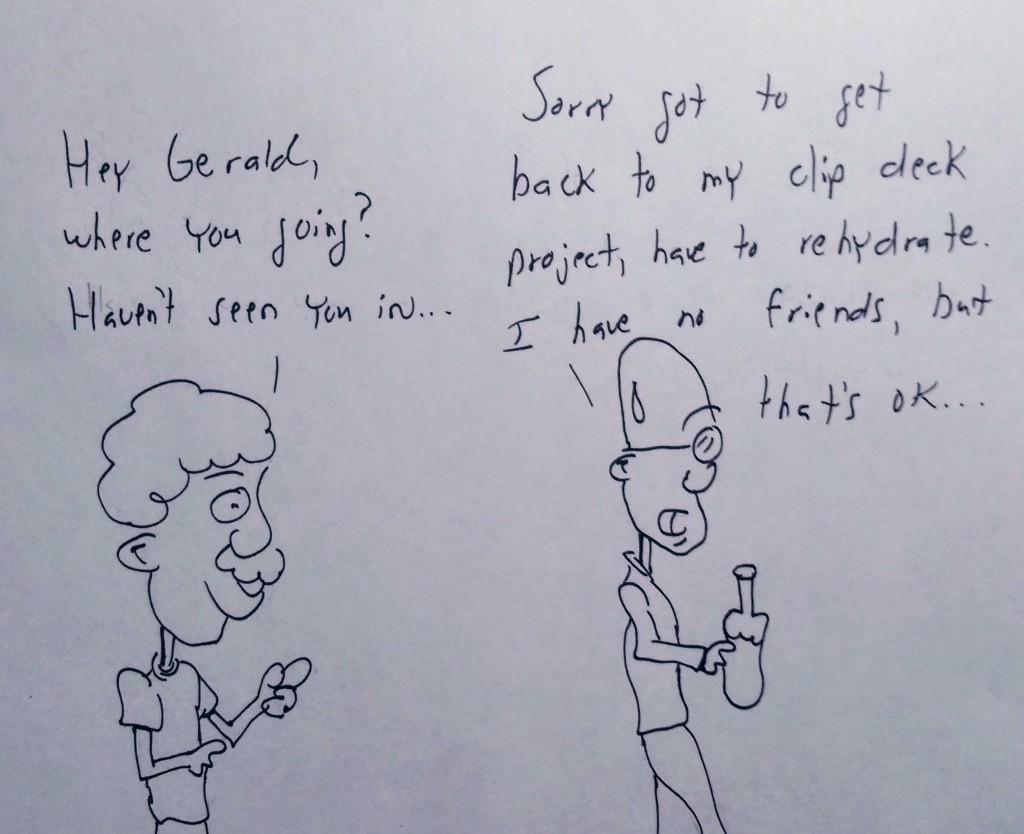 Hey Gerald,
where you going?
Haven't seen you in...
Sorry got to get
back to my clip deck
project, have to rehydrate.
I have no friends, but
that's OK...